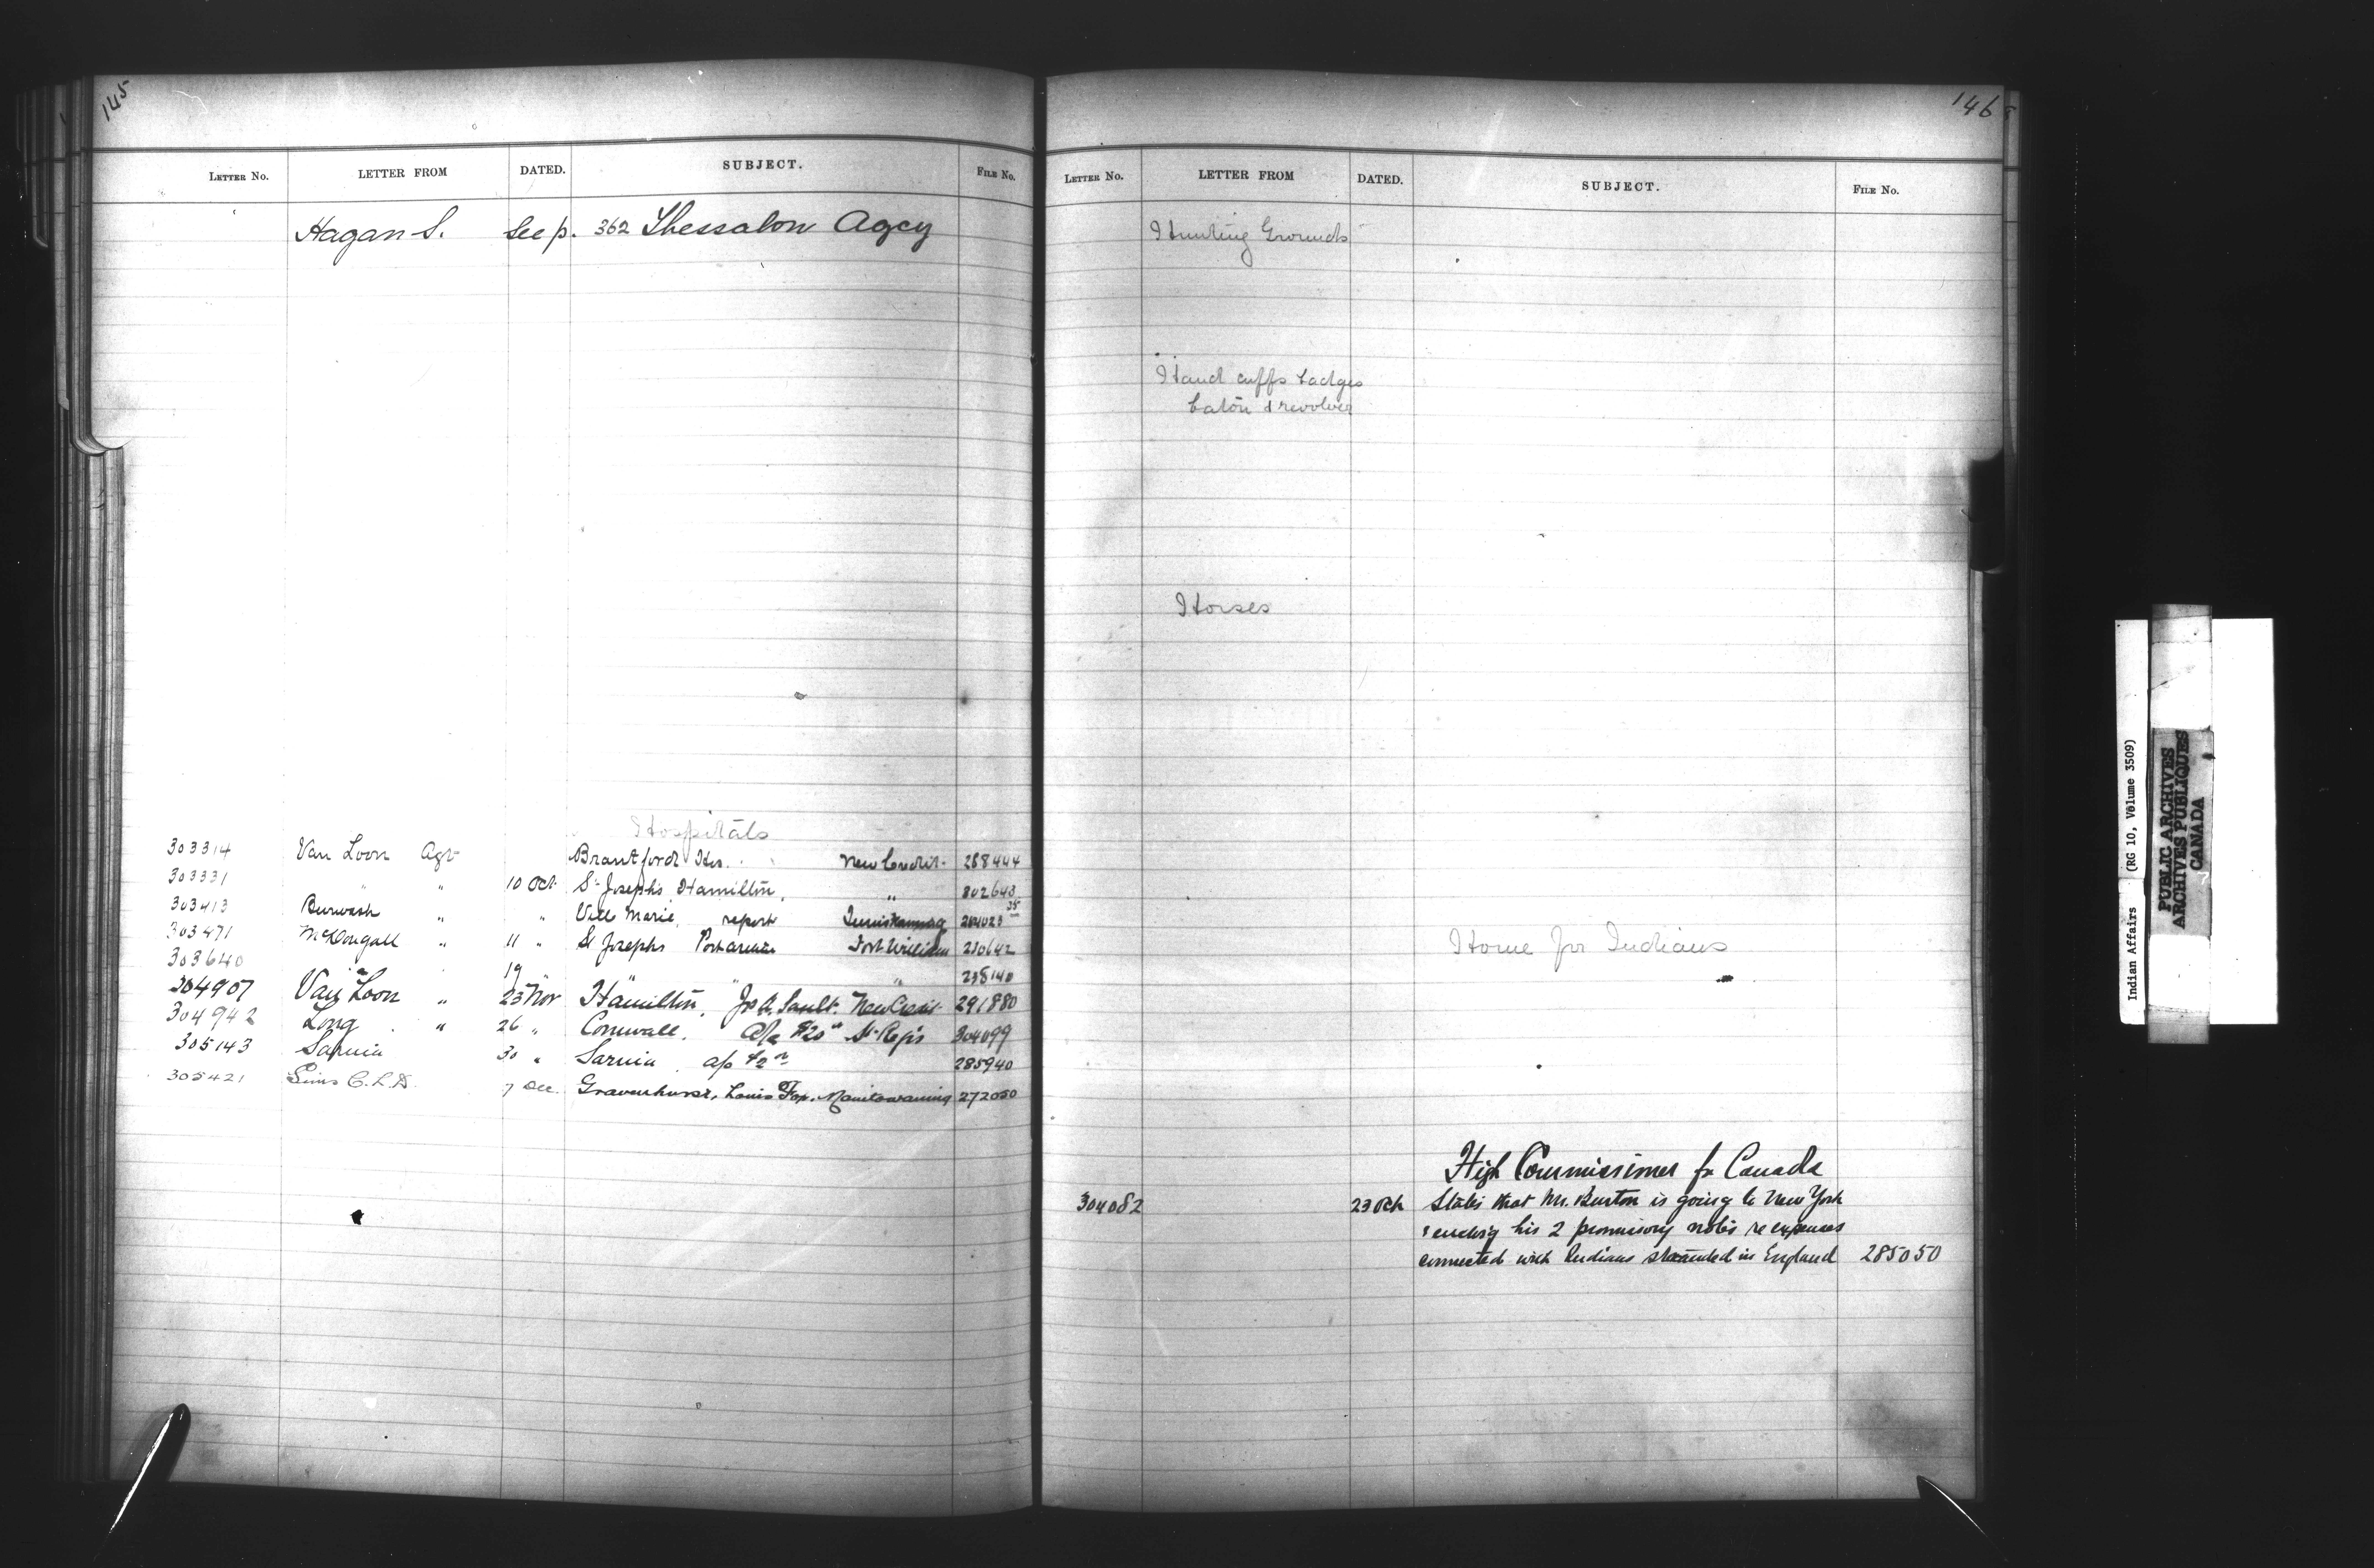 145
LETTER NO. LETTER FROM DATED. SUBJECT. FILE No.
Hagan S. See p. 362 Thessalon Agcy
Hospitals
303314 Van Loon Agt Brantford Hos. New Credit 288444
303331 " " 10 Oct St Joseph's Hamilton, " 302643
303413 Burwash " " Ville Marie, report Temiskaming 204023 35
303471 McDougall " 11 " St Josephs Port Arthur Fort William 210642
303640 " 19 " " " 238140
304907 Van Loon " 23 Nov Hamilton, Jos A. Sault. New Credit 291880
304942 Long " 26 " Cornwall, a/c $20 St Regis 304099
305143 Sarnia 30 " Sarnia a/c $2 285940
305421 Sims C.L.D. 7 Dec. Gravenhurst, Louis Fox, Manitowaning 272050
146
LETTER NO. LETTER FROM DATED. SUBJECT. FILE No.
Hunting Grounds
Hand cuffs badges
baton & revolver
Horses
Home for Indians
High Commissioner for Canada
304082 23 Oct States that Mr. Burton is going to New York
& encl'g his 2 promissory notes re expenses
connected with Indians stranded in England 285050
Indian Affairs (RG 10, Volume 3509)
PUBLIC ARCHIVES
ARCHIVES PUBLIQUES
CANADA